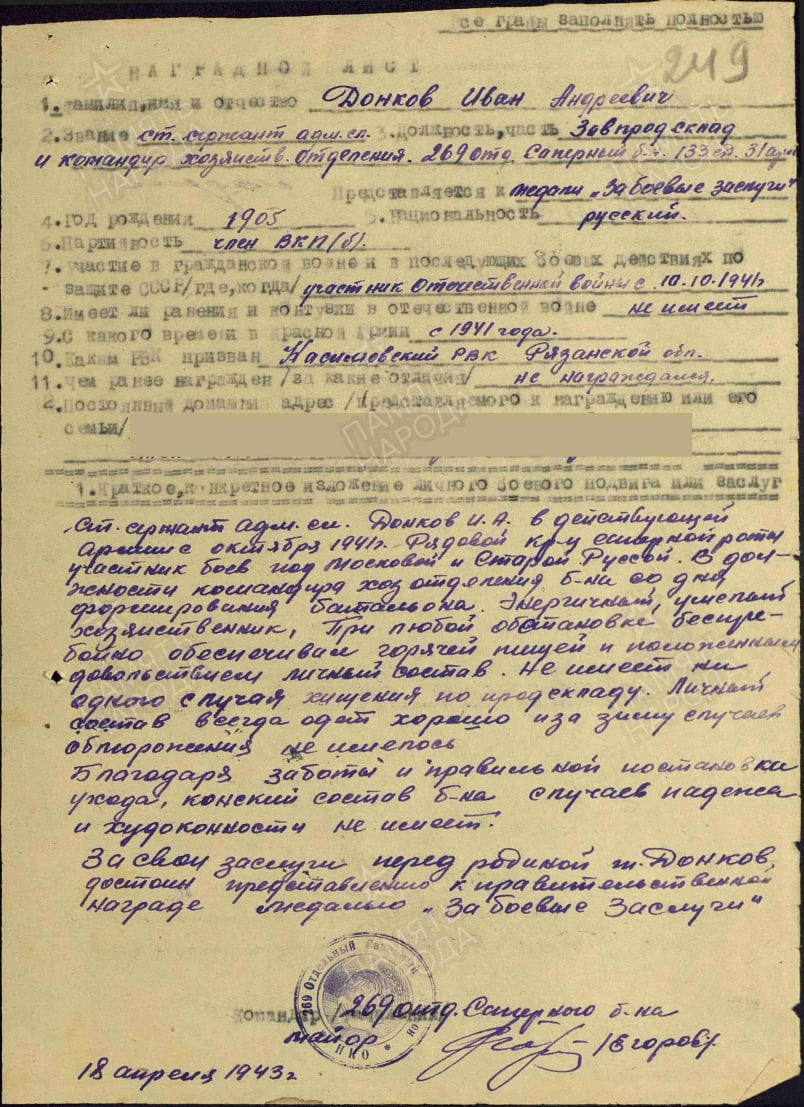 Все графы заполнять полностью
249
НАГРАДНОЙ ЛИСТ
1. Фамилия, имя и отчество Донков Иван Андреевич
2. Звание ст. сержант адм. сл. 3. Должность, часть Завпродсклад
и командир хозяйств. отделения. 269 отд. Саперный б-н. 133 сд. 31 арм
Представляется к медали „За боевые заслуги"
4. Год рождения 1905 5. Национальность русский.
6. Партийность член ВКП(б).
7. Участие в гражданской войне и в последующих боевых действиях по
защите СССР /где, когда/ участник Отечественной войны с 10.10-1941г
8. Имеет ли ранения и контузии в отечественной войне не имеет
9. С какого времени в Красной Армии с 1941 года.
10. Каким РВК призван Касимовский РВК Рязанской обл.
11. Чем ранее награжден /за какие отличия/ не награждался.
2. Постоянный домашний адрес /представляемого к награждению или его
семьи/
1. Краткое, конкретное изложение личного боевого подвига или заслуг
Ст. сержант адм. сл. Донков И.А. в действующей
армии с октября 1941г. Рядовой кр-ц саперной роты
участник боев под Москвой и Старой Руссой. В дол-
жности командира хоз отделения б-на со дня
формирования батальона. Энергичный, умелый
хозяйственник, При любой обстановке беспере-
бойно обеспечивал горячей пищей и положенным
довольствием личный состав. Не имеет ни
одного случая хищения по продскладу. Личный
состав всегда одет хорошо и за зиму случаев
обморожения не имелось
Благодаря заботы и правильной постановки
ухода, конский состав б-на случаев падежа
и худоконности не имеет.
За свои заслуги перед родиной т. Донков,
достоин представлению к правительственной
награде медалью „За боевые Заслуги"
269 Отдельный Саперный
НКО
Командир 269 отд. Саперного б-на
майор /Егоров/.
18 апреля 1943г
ПАМЯТЬ НАРОДА